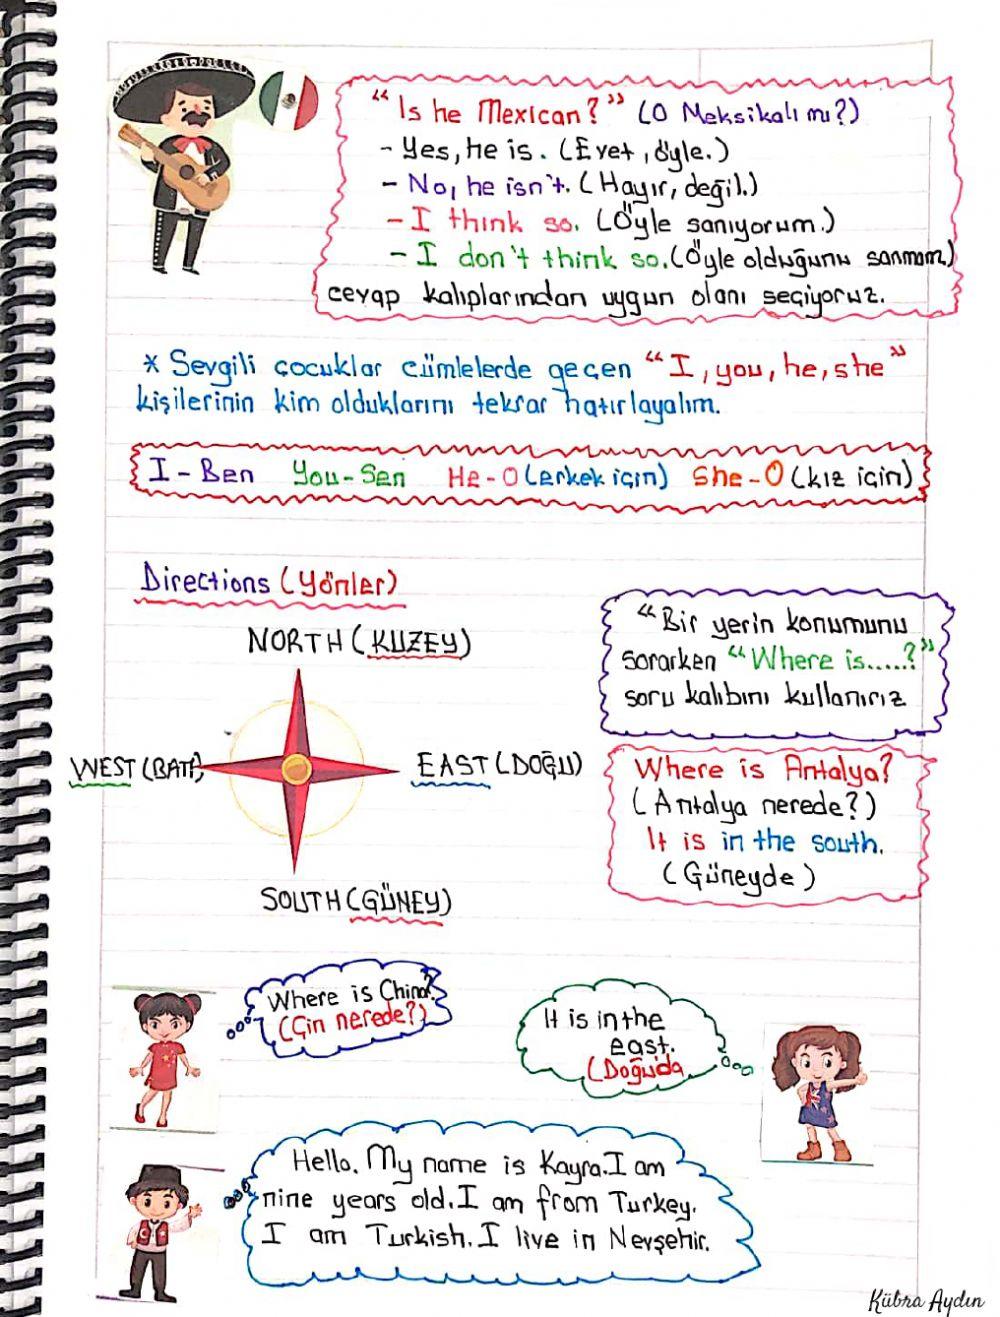 “Is he Mexican?” (O Meksikalı mı?)
- Yes, he is. (Evet, öyle.)
- No, he isn't. (Hayır, değil.)
- I think so. (Öyle sanıyorum.)
- I don't think so. (Öyle olduğunu sanmam.)
cevap kalıplarından uygun olanı seçiyoruz.
* Sevgili çocuklar cümlelerde geçen “I, you, he, she”
kişilerinin kim olduklarını tekrar hatırlayalım.
I - Ben You - Sen He - O (erkek için) She - O (kız için)
Directions (Yönler)
NORTH (KUZEY)
WEST (BATI)
EAST (DOĞU)
SOUTH (GÜNEY)
“Bir yerin konumunu
sorarken “Where is.....?”
soru kalıbını kullanırız
Where is Antalya?
(Antalya nerede?)
It is in the south.
(Güneyde)
Where is China?
(Çin nerede?)
It is in the
east.
(Doğuda
Hello. My name is Kayra. I am
nine years old. I am from Turkey.
I am Turkish. I live in Nevşehir.
Kübra Aydın